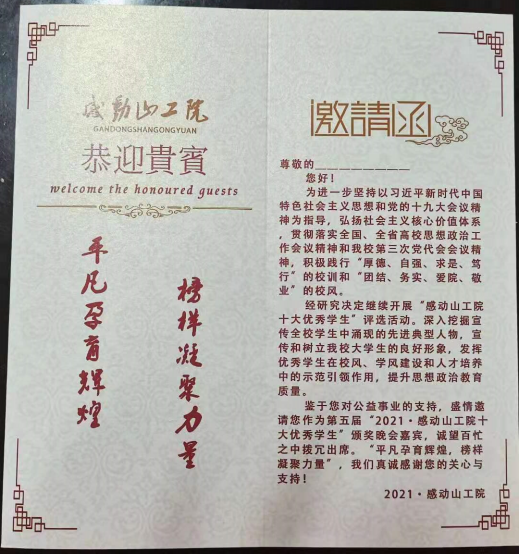 感動山工院
GANDONGSHANGONGYUAN
恭迎貴賓
welcome the honoured guests
平凡孕育辉煌
榜样凝聚力量
邀請函
尊敬的__________
您好！
为进一步坚持以习近平新时代中国
特色社会主义思想和党的十九大会议精
神为指导，弘扬社会主义核心价值体系
，贯彻落实全国、全省高校思想政治工
作会议精神和我校第三次党代会会议精
神，积极践行“厚德、自强、求是、笃
行”的校训和“团结、务实、爱院、敬
业”的校风。
经研究决定继续开展“感动山工院
十大优秀学生”评选活动。深入挖掘宣
传全校学生中涌现的先进典型人物，宣
传和树立我校大学生的良好形象，发挥
优秀学生在校风、学风建设和人才培养
中的示范引领作用，提升思想政治教育
质量。
鉴于您对公益事业的支持，盛情邀
请您作为第五届“2021·感动山工院十
大优秀学生”颁奖晚会嘉宾，诚望百忙
之中拨冗出席。“平凡孕育辉煌，榜样
凝聚力量”，我们真诚感谢您的关心与
支持！
2021·感动山工院